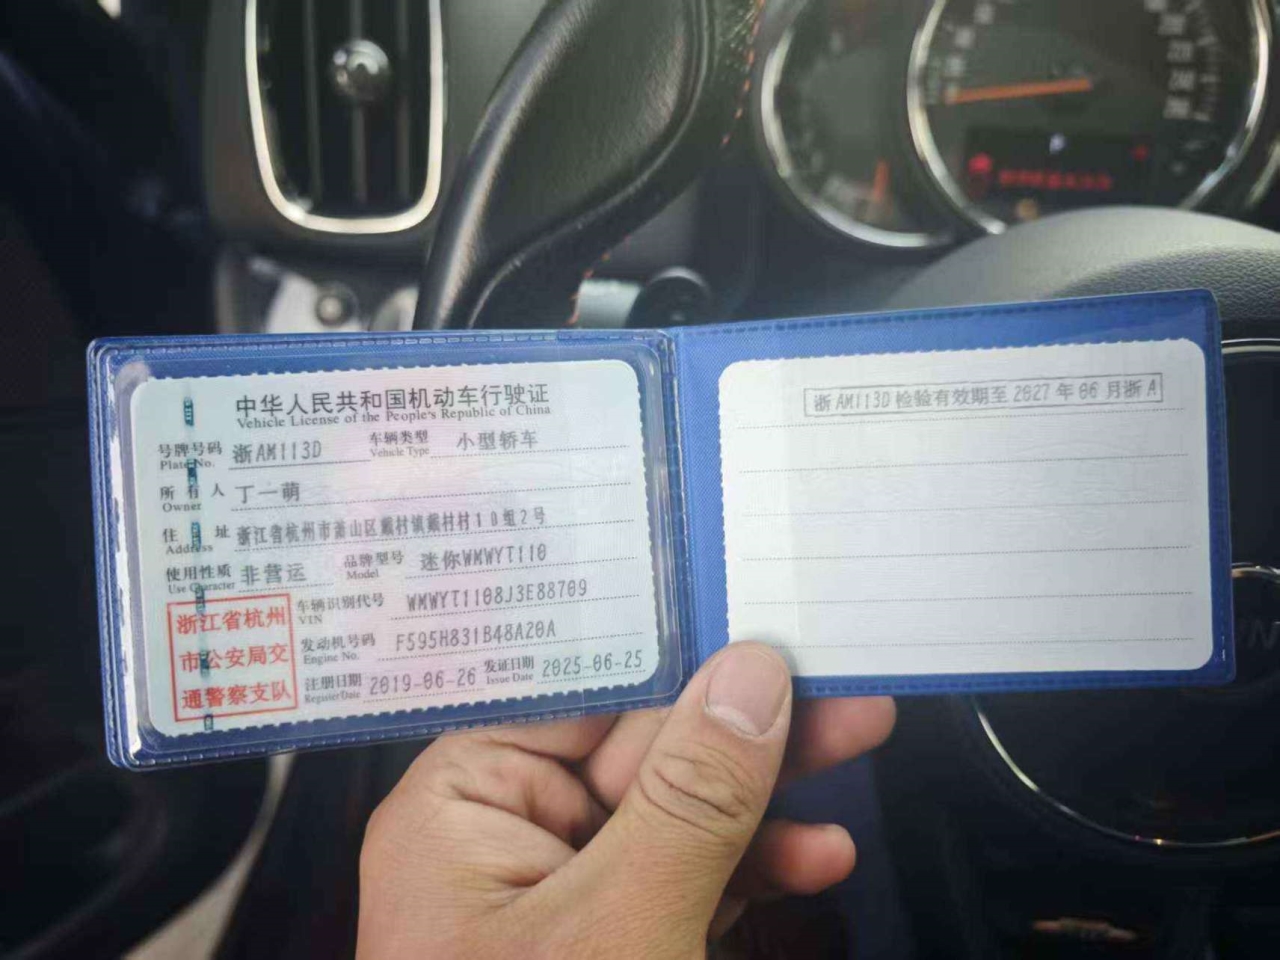 中华人民共和国机动车行驶证
Vehicle License of the People's Republic of China
号牌号码 浙AM113D 车辆类型 小型轿车
Plate No. Vehicle Type
所有人 丁一萌
Owner
住址 浙江省杭州市萧山区戴村镇戴村村10组2号
Address
使用性质 非营运 品牌型号 迷你WMWYT110
Use Character Model
车辆识别代号 WMWYT1108J3E88709
VIN
发动机号码 F595H831B48A20A
Engine No.
注册日期 2019-06-26 发证日期 2025-06-25
Register Date Issue Date
浙江省杭州
市公安局交
通警察支队
浙AM113D 检验有效期至 2027 年 06 月浙A